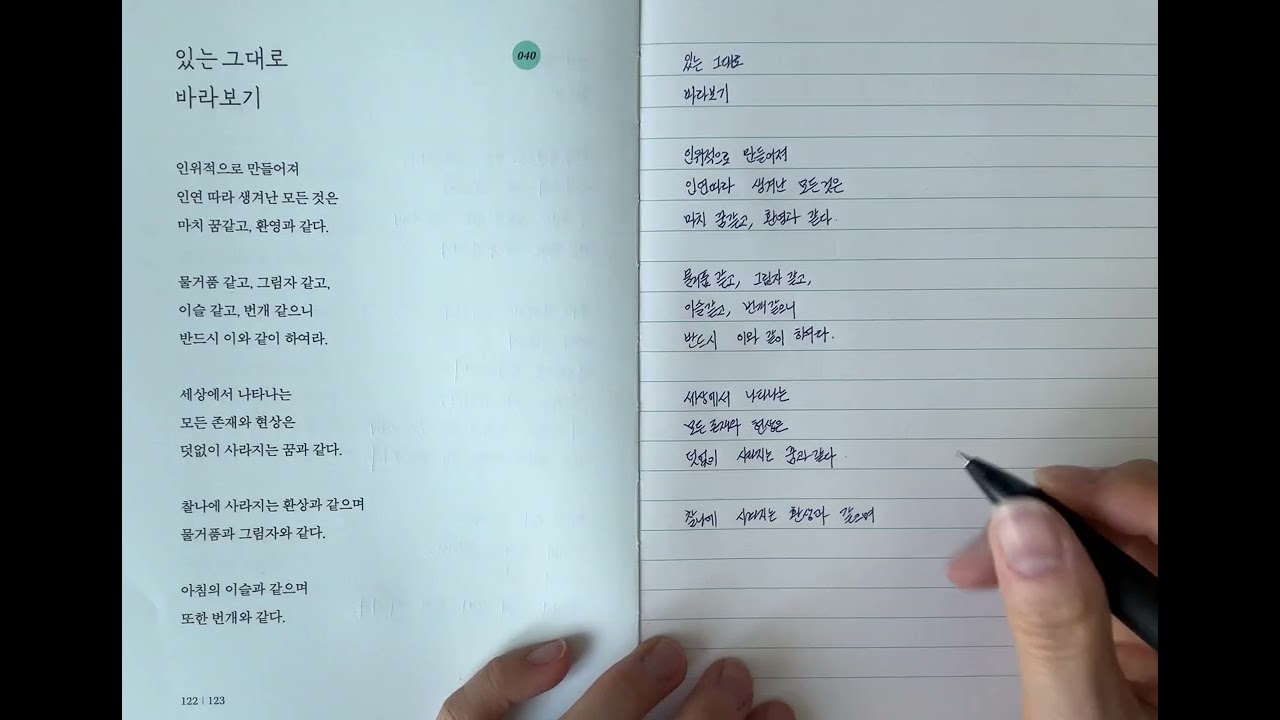 있는 그대로
바라보기
040
인위적으로 만들어져
인연 따라 생겨난 모든 것은
마치 꿈같고, 환영과 같다.
물거품 같고, 그림자 같고,
이슬 같고, 번개 같으니
반드시 이와 같이 하여라.
세상에서 나타나는
모든 존재와 현상은
덧없이 사라지는 꿈과 같다.
찰나에 사라지는 환상과 같으며
물거품과 그림자와 같다.
아침의 이슬과 같으며
또한 번개와 같다.
122 | 123
있는 그대로
바라보기
인위적으로 만들어져
인연따라 생겨난 모든것은
마치 꿈같고, 환영과 같다.
물거품 같고, 그림자 같고,
이슬같고, 번개같으니
반드시 이와 같이 하여라.
세상에서 나타나는
모든 존재와 현상은
덧없이 사라지는 꿈과같다.
찰나에 사라지는 환상과 같으며